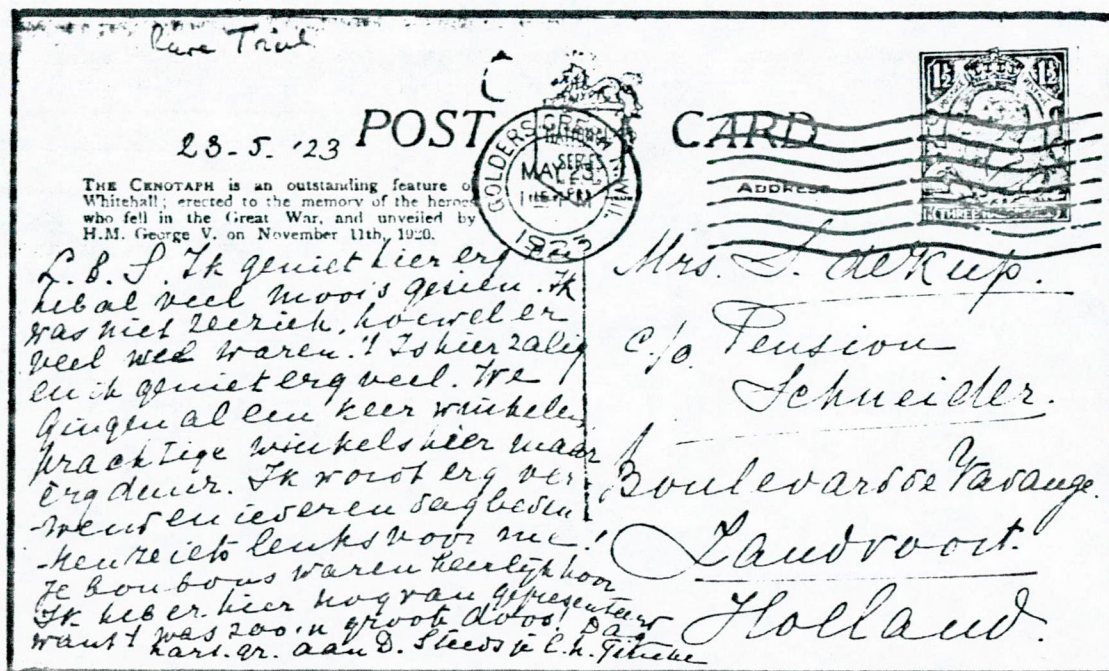 POST CARD
23-5-'23
GOLDERS GREEN N.W.11.
MAY 23
1923
THE CENOTAPH is an outstanding feature of
Whitehall; erected to the memory of the heroes
who fell in the Great War, and unveiled by
H.M. George V. on November 11th, 1920.
ADDRESS
L.B.S. Ik geniet hier erg en
heb al veel moois gezien. Ik
was niet zeeziek, hoewel er
veel wel waren. 't Is hier zalig
en ik geniet erg veel. We
gingen al een keer winkelen,
prachtige winkels hier maar
erg duur. Ik word erg ver-
wend en iederen dag beden-
ken ze iets leuks voor me!
Je bonbons waren heerlijk hoor
Ik heb er hier nog van gepresenteerd
want 't was zoo'n groote doos! Dag
hart. gr. aan D. Steeds je
Mrs. S. de Kup.
c/o Pension
Schneider
Boulevard de Favauge.
Zandvoort.
Holland.